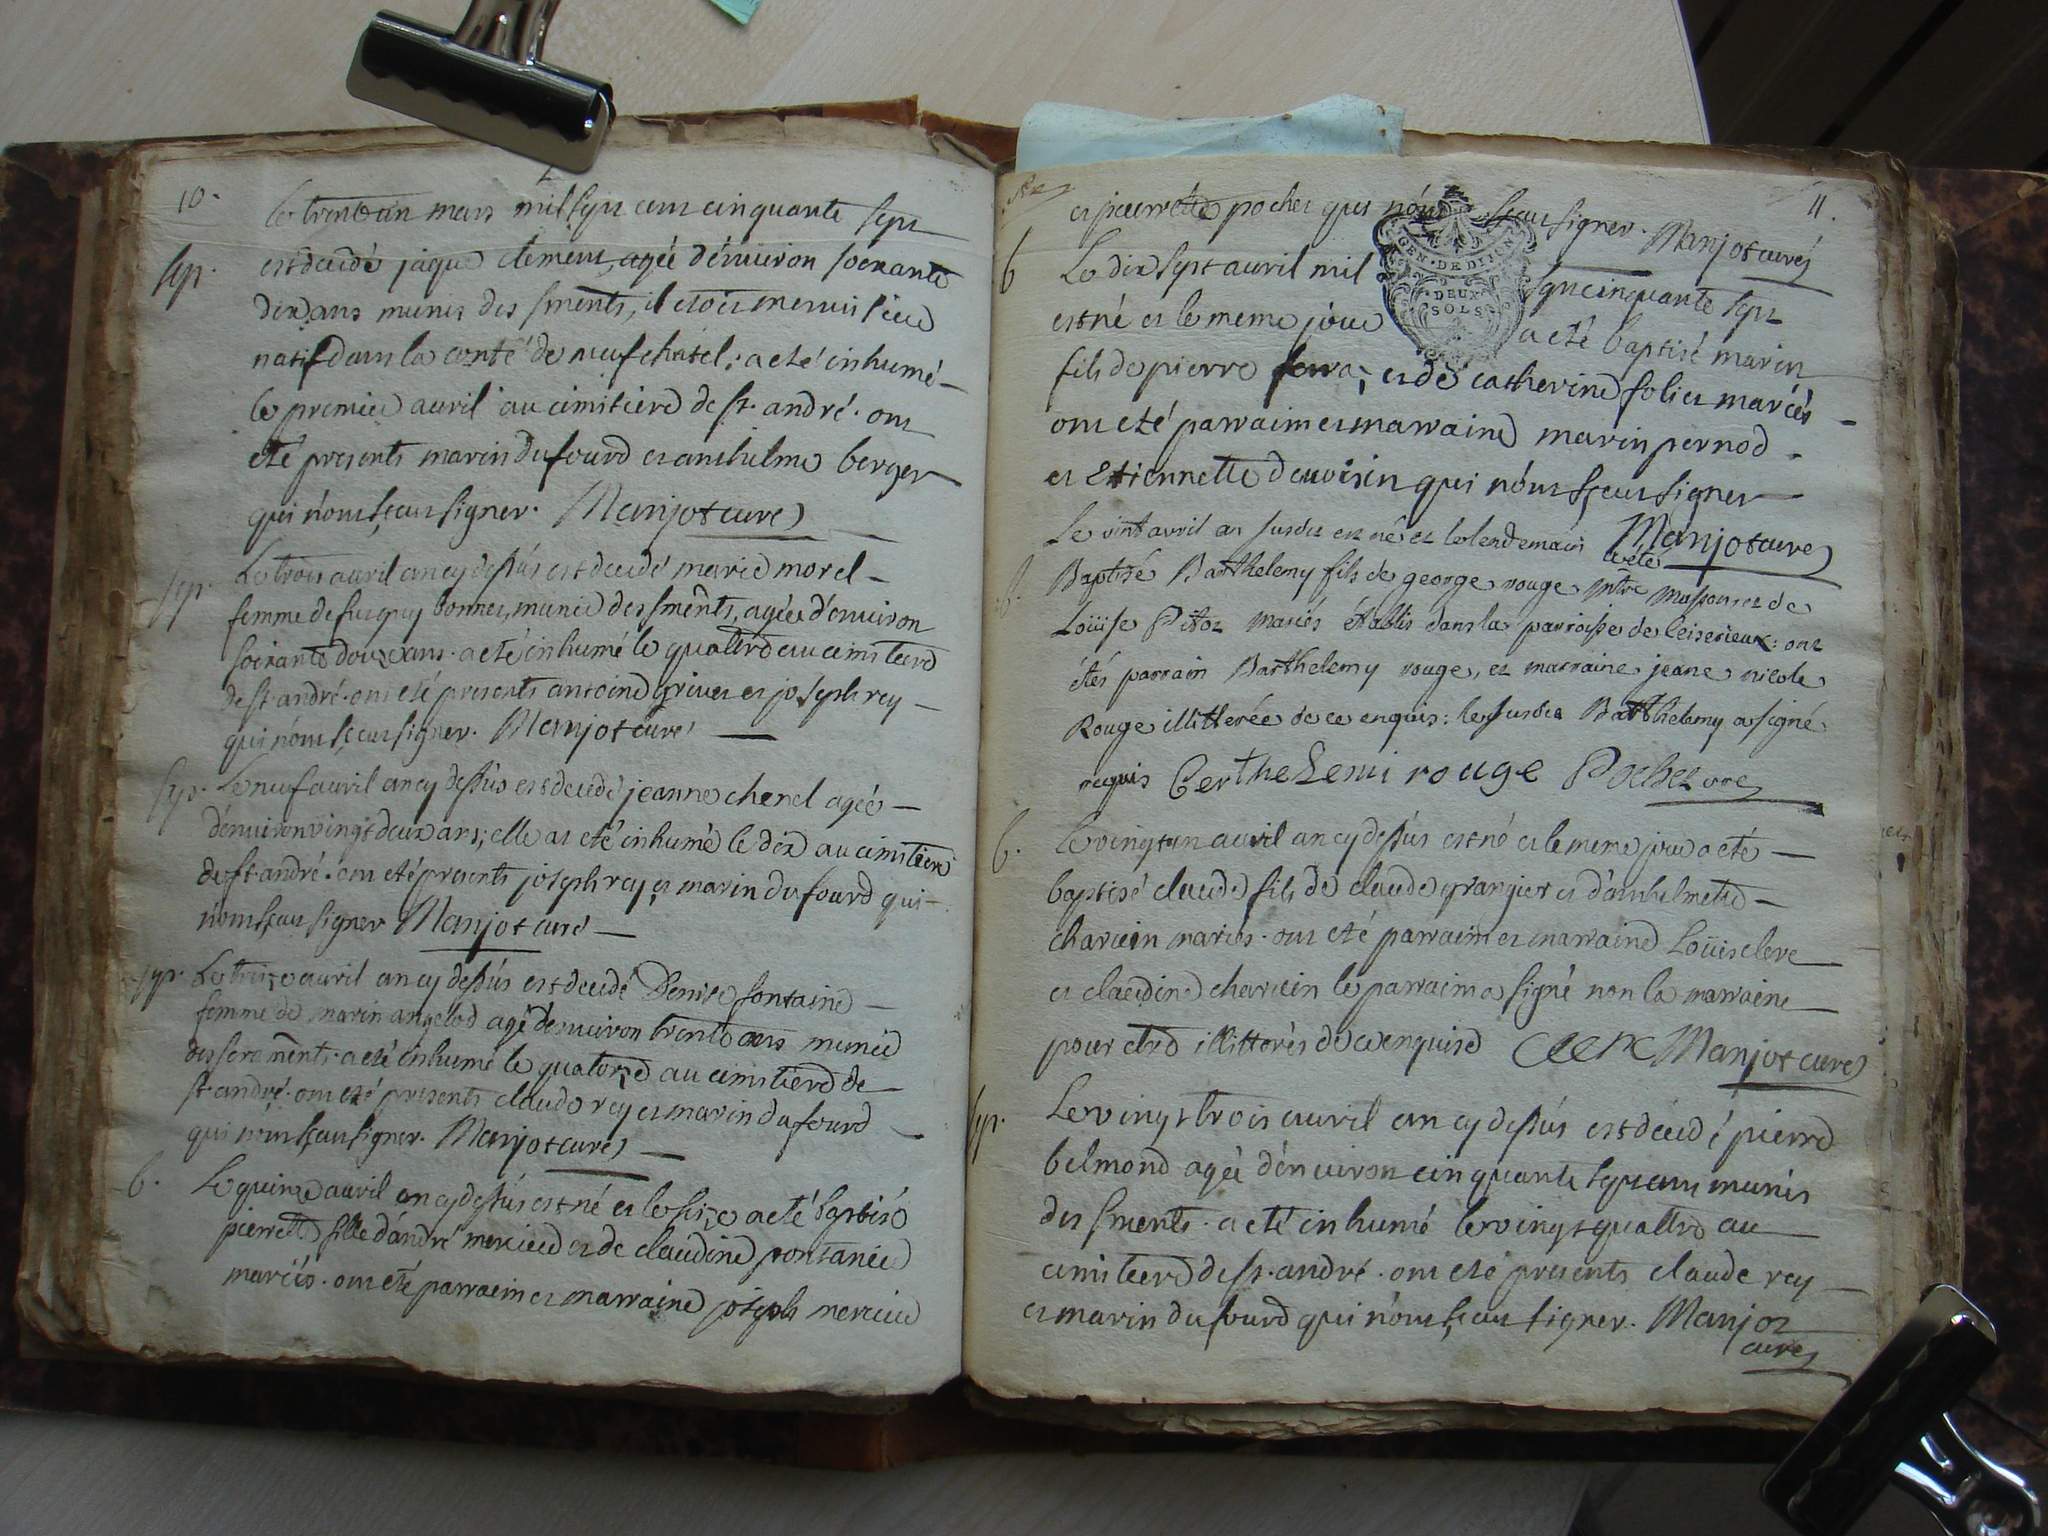 10.
le trente un mars mil sept cent cinquante sept
sep.
est decedé jaque clement, agée d'environ soixante
dix ans munis des sments, il etoit menuisier
natif dans la conté de neufchatel; a eté inhumé
le premier avril au cimitiere de st. andré. ont
eté presents marin dufourd et anthelme berger
qui n'ont sçeu signer. Manjot curé
sep.
Le trois avril an cy dessus est decedé marie morel
femme de fut guy bonnet, munie des sments, agée d'environ
soixante douze ans. a eté inhumé le quattre au cimitiere
de st. andré. ont eté presents antoine grivet et joseph rey
qui n'ont sçeu signer. Manjot curé
sep.
Le neuf avril an cy dessus est decedé jeanne chenel agée
d'environ vingt deux ans; elle at eté inhumé le dix au cimitiere
de st. andré. ont eté presents joseph rey et marin dufourd qui
n'ont sçeu signer Manjot curé
sep.
Le treize avril an cy dessus est decedé Denise fontaine
femme de marin angelod agé d'environ trente ans munie
des sacrements. a eté inhumé le quatorze au cimitiere de
st. andré. ont eté presents claude rey et marin dufourd
qui n'ont sçeu signer. Manjot curé
b.
Le quinze avril an cy dessus est né et le seize a eté baptisé
pierrette fille d'andré mercier et de claudine pontanier
mariés. ont eté parrain et marraine joseph mercier
11.
et pierrette pochet qui n'ont sçeu signer. Manjot curé
GEN. DE DIJON
DEUX
SOLS
b
Le dix sept avril mil sept cinquante sept
est né et le meme jour a eté baptisé marin
fils de pierre ferra; et de catherine foliet mariés
ont eté parrain et marraine marin pernod
et Etiennette devoisin qui n'ont sçeu signer
Manjot curé
Le vint avril an susdit est né et le lendemain a été
b.
Baptisé Barthelemy fils de george rouge mtre masson et de
Loüise Pitoz mariés établis dans la parroisse de leiserieux: ont
étés parrain Barthelemy rouge, et marraine jeane nicole
Rouge illitterée de ce enquis: le susdit Barthelemy a signé
requis Berthelemi rouge Pochet vre
b.
Le vingt un avril an cy dessus est né et le meme jour a eté
baptisé claude fils de claude grangier et d'anthelmette
charvin mariés. ont eté parrain et marraine Loüis clere
et claudine charvin le parrain a signé non la marraine
pour etre illitterés de ce enquise Manjot curé
sep.
Le vingt trois avril an cy dessus est decedé pierre
belmond agée d'environ cinquante sept ans munis
des sments. a eté inhumé le vingt quattre au
cimitiere de st. andré. ont eté presents claude rey
et marin dufourd qui n'ont sçeu signer. Manjot
curé